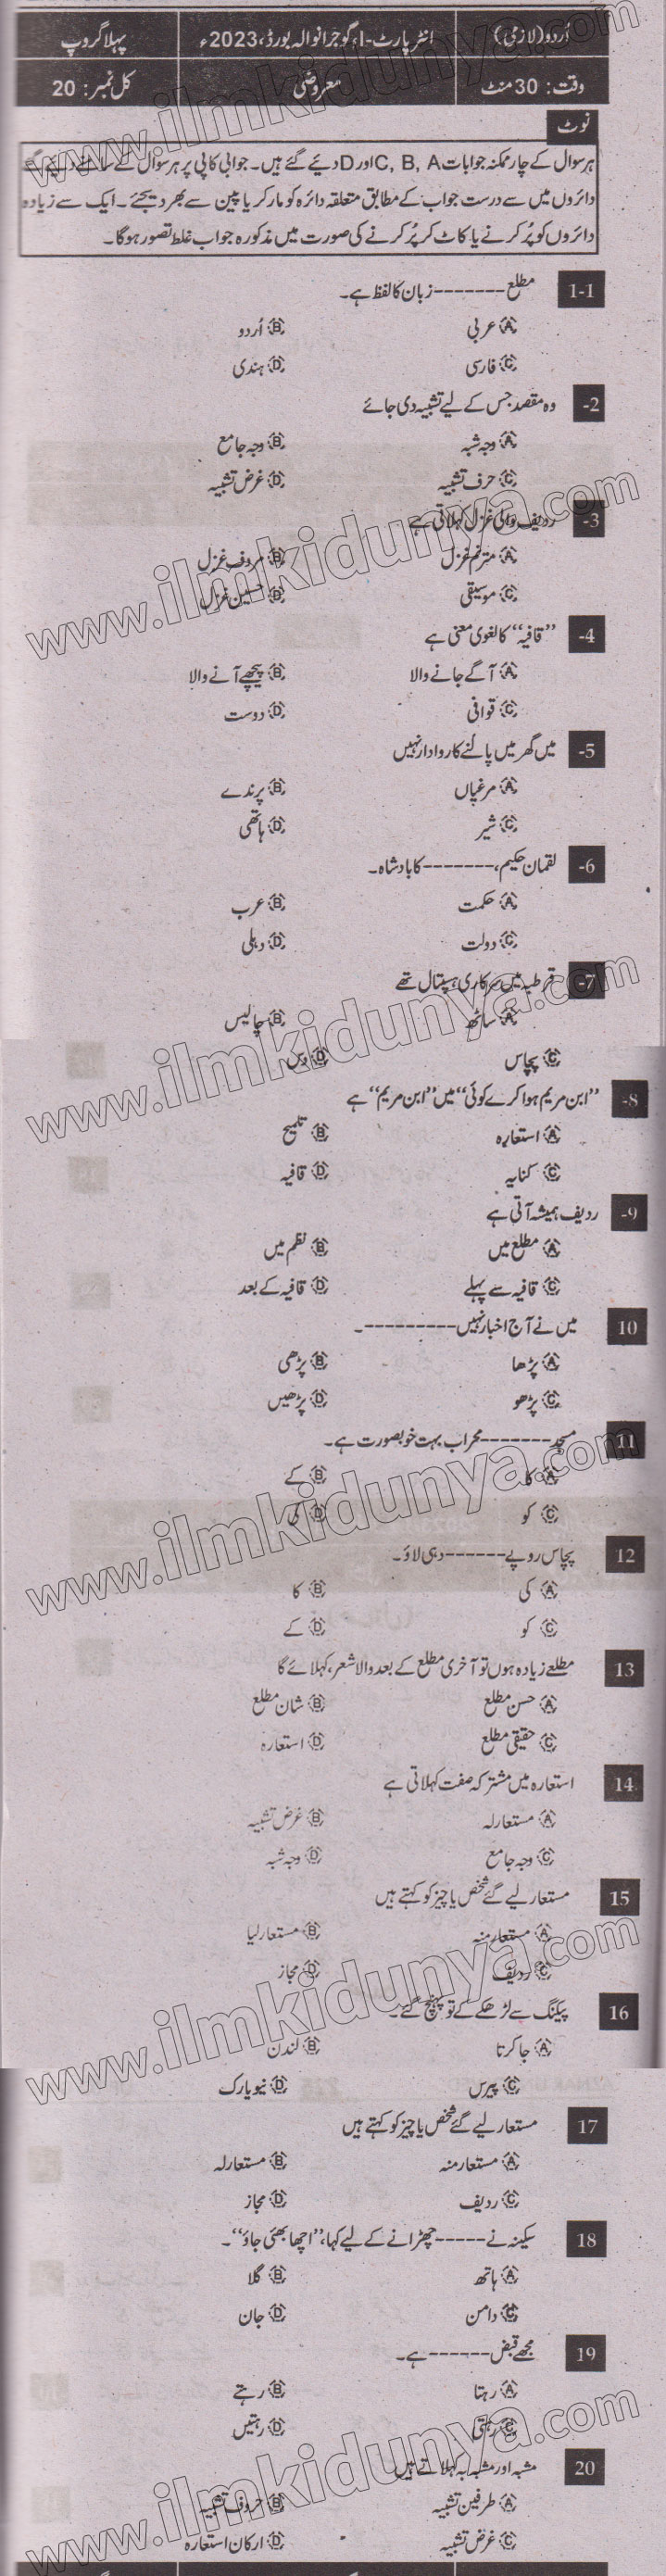 اُردو (لازمی) انٹر پارٹ-I، گوجرانوالہ بورڈ، 2023ء پہلا گروپ
وقت: 30 منٹ معروضی کل نمبر: 20
نوٹ
ہر سوال کے چار ممکنہ جوابات A، B، C اور D دیئے گئے ہیں۔ جوابی کاپی پر ہر سوال کے سامنے دیئے گئے
دائروں میں سے درست جواب کے مطابق متعلقہ دائرہ کو مارکر یا پین سے بھر دیجئے۔ ایک سے زیادہ
دائروں کو پُر کرنے یا کاٹ کر پُر کرنے کی صورت میں مذکورہ جواب غلط تصور ہوگا۔
1-1 مطلع ------- زبان کا لفظ ہے۔
(A) عربی (B) اُردو
(C) فارسی (D) ہندی
-2 وہ مقصد جس کے لیے تشبیہ دی جائے
(A) وجہ شبہ (B) وجہ جامع
(C) حرف تشبیہ (D) غرض تشبیہ
-3 ردیف والی غزل کہلاتی ہے
(A) مترنم غزل (B) مردف غزل
(C) موسیقی (D) حسین غزل
-4 ”قافیہ“ کا لغوی معنی ہے
(A) آگے جانے والا (B) پیچھے آنے والا
(C) قوافی (D) دوست
-5 میں گھر میں پالنے کا روادار نہیں
(A) مرغیاں (B) پرندے
(C) شیر (D) ہاتھی
-6 لقمان حکیم، ------- کا بادشاہ۔
(A) حکمت (B) عرب
(C) دولت (D) دہلی
-7 قرطبہ میں سرکاری ہسپتال تھے
(A) ساٹھ (B) چالیس
(C) پچاس (D) دس
-8 ”ابن مریم ہوا کرے کوئی“ میں ”ابن مریم“ ہے
(A) استعارہ (B) تلمیح
(C) کنایہ (D) قافیہ
-9 ردیف ہمیشہ آتی ہے
(A) مطلع میں (B) نظم میں
(C) قافیہ سے پہلے (D) قافیہ کے بعد
10 میں نے آج اخبار نہیں ---------۔
(A) پڑھا (B) پڑھی
(C) پڑھو (D) پڑھیں
11 مسجد ------- محراب بہت خوبصورت ہے۔
(A) کا (B) کے
(C) کو (D) کی
12 پچاس روپے ------ دہی لاؤ۔
(A) کی (B) کا
(C) کو (D) کے
13 مطلعے زیادہ ہوں تو آخری مطلع کے بعد والا شعر، کہلائے گا
(A) حسن مطلع (B) شان مطلع
(C) حقیقی مطلع (D) استعارہ
14 استعارہ میں مشترکہ صفت کہلاتی ہے
(A) مستعارلہ (B) غرض تشبیہ
(C) وجہ جامع (D) وجہ شبہ
15 مستعار لیے گئے شخص یا چیز کو کہتے ہیں
(A) مستعارمنہ (B) مستعارلیا
(C) ردیف (D) مجاز
16 پیکنگ سے لڑھکے کے تو پہنچ گئے۔
(A) جاکرتا (B) لندن
(C) پیرس (D) نیویارک
17 مستعار لیے گئے شخص یا چیز کو کہتے ہیں
(A) مستعارمنہ (B) مستعارلہ
(C) ردیف (D) مجاز
18 سکینہ نے ----- چھڑانے کے لیے کہا، ”اچھا بھئی جاؤ“۔
(A) ہاتھ (B) گلا
(C) دامن (D) جان
19 مجھے قبض ------ ہے۔
(A) رہتا (B) رہتے
(C) رہتی (D) رہتیں
20 مشبہ اور مشبہ بہ کہلاتے ہیں
(A) طرفین تشبیہ (B) حروف تشبیہ
(C) غرض تشبیہ (D) ارکان استعارہ
www.ilmkidunya.com
www.ilmkidunya.com
www.ilmkidunya.com
www.ilmkidunya.com
www.ilmkidunya.com
www.ilmkidunya.com